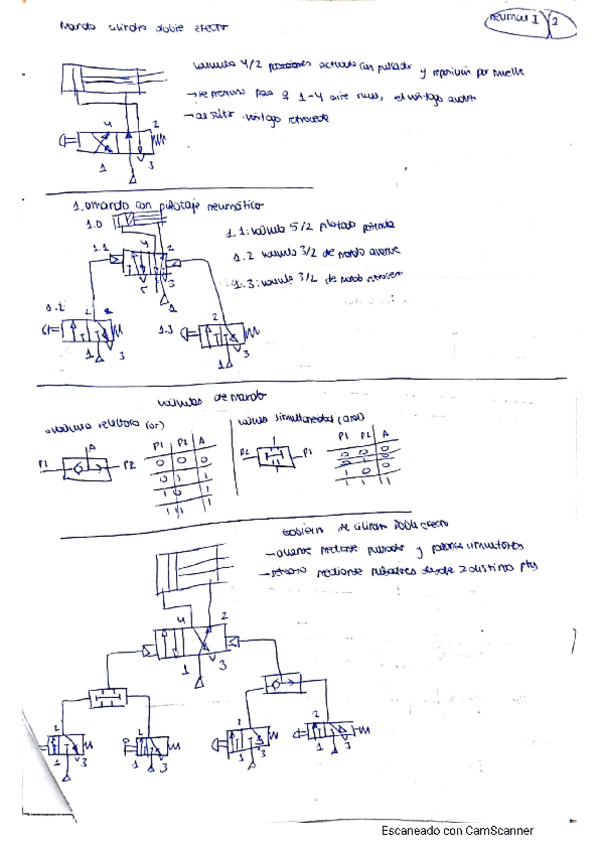 Mando cilindro doble efecto
neumat I 2
válvula 4/2 posiciones activada con pulsador y reposición por muelle
1-4 aire
vástago retrocede
4 2
1 3
1. mando con pilotaje neumático
1.0
1.1: válvula 5/2 pilotada
1.1 4 2
1.2 válvula 3/2 de mando avance
5 1 3
1.3: válvula 3/2 de mando retroceso
1.2 2
1 3
1.3 2
1 3
válvulas de mando
válvula selectora (or)
válvula simultaneidad (and)
P1 P2 A
P1 P2 A
0 0 0
0 1 1
1 0 1
1 1 1
P1 P2 A
P2 P1
0 0 0
0 1 0
1 0 0
1 1 1
Gobierno de cilindro doble efecto
- avance mediante pulsador y palanca simultáneos
- retroceso mediante pulsadores desde 2 distintos ptos
4 2
1 3
2 1 3
2 1 3
2 1 3
2 1 3
Escaneado con CamScanner